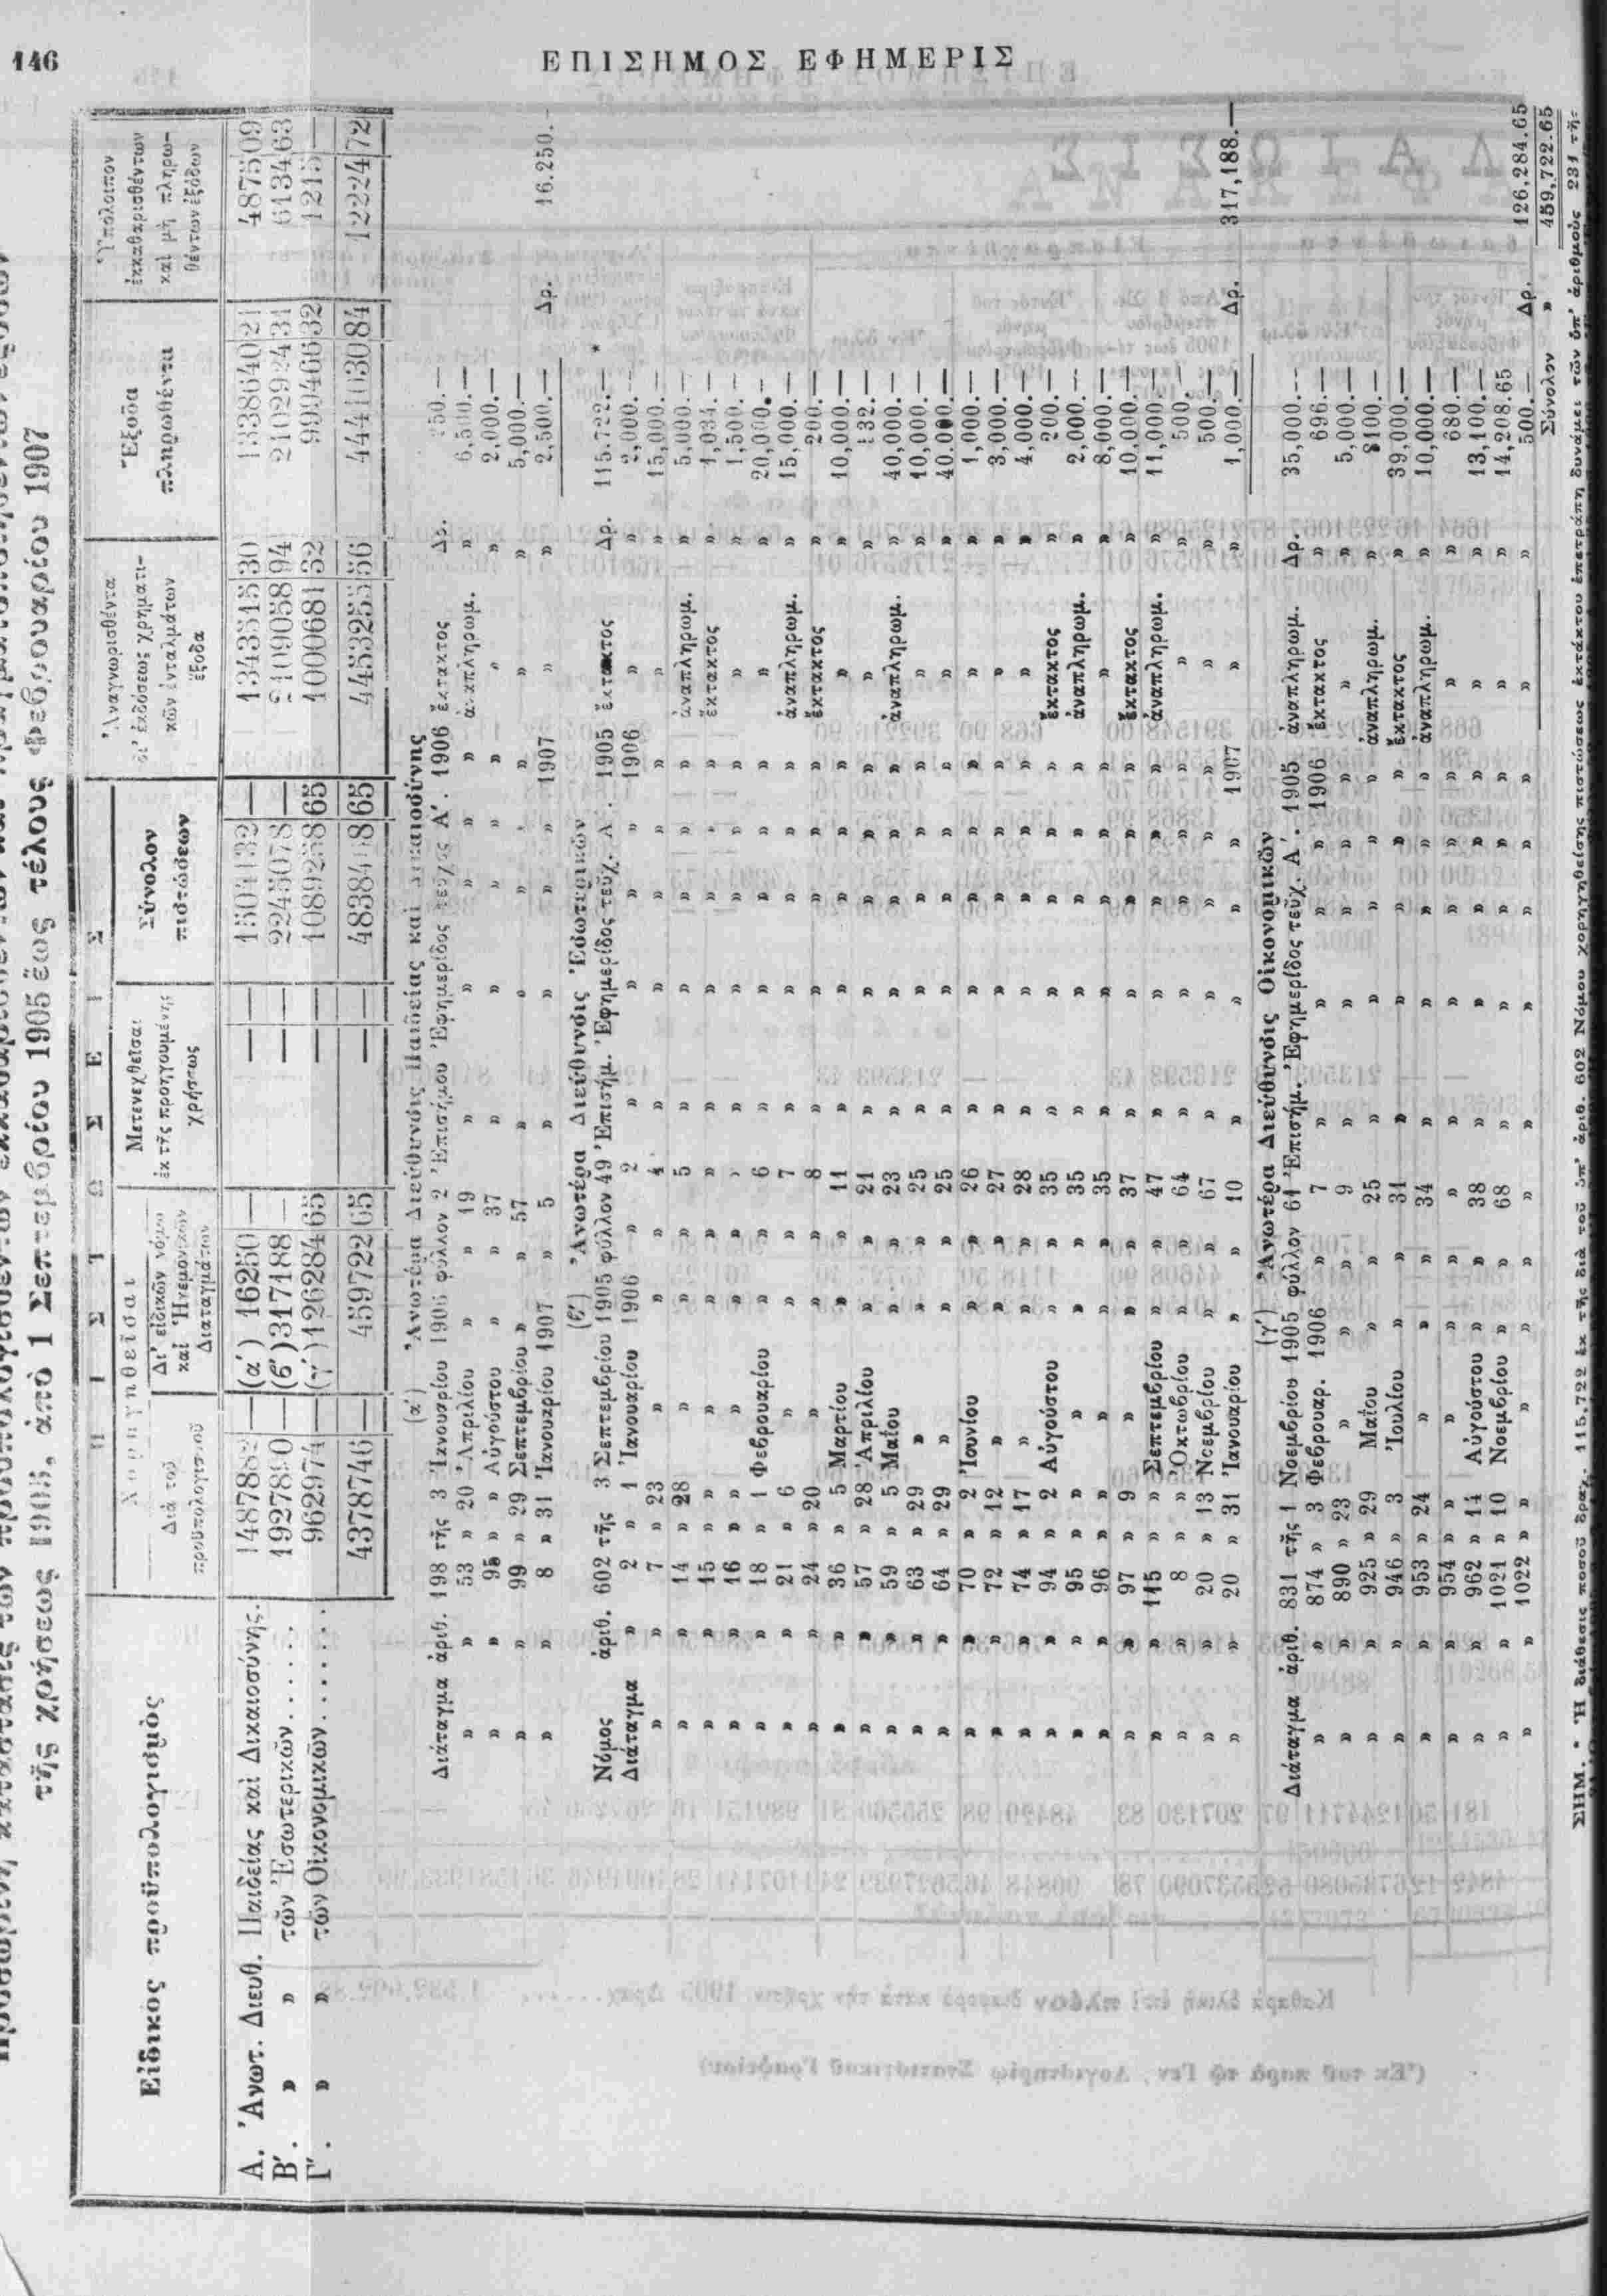 146
ΕΠΙΣΗΜΟΣ ΕΦΗΜΕΡΙΣ
τῆς χρήσεως 1905, ἀπὸ 1 Σεπτεμβρίου 1905 ἕως τέλους Φεβρουαρίου 1907
Εἰδικὸς προϋπολογισμὸς
Π Ι Σ Τ Ω Σ Ε Ι Σ
Χορηγηθεῖσαι
Διὰ τοῦ προϋπολογισμοῦ
Δι' εἰδικῶν νόμων καὶ Ἡγεμονικῶν Διαταγμάτων
Μετενεχθεῖσαι ἐκ τῆς προηγουμένης χρήσεως
Σύνολον πιστώσεων
Ἀναγνωρισθέντα δι' ἐκδόσεως χρηματικῶν ἐνταλμάτων ἔξοδα
Ἔξοδα πληρωθέντα
Ὑπόλοιπον ἐκκαθαρισθέντων καὶ μὴ πληρωθέντων ἐξόδων
Α. Ἀνωτ. Διευθ. Παιδείας καὶ Δικαιοσύνης. 1487882 — (α') 16250 — — — 1504132 — 1343515 30 1338640 21 4875 09
Β'. » » τῶν Ἐσωτερικῶν...... 1927890 — (β') 317188 — — — 2245078 — 2109058 94 2102924 31 6134 63
Γ'. » » τῶν Οἰκονομικῶν...... 962974 — (γ') 126284 65 — — 1089258 65 1000681 32 999466 32 1215 —
4378746 — 459722 65 — — 4838468 65 4453255 56 4441030 84 12224 72
(α') Ἀνωτέρα Διεύθυνσις Παιδείας καὶ Δικαιοσύνης
Διάταγμα ἀριθ. 198 τῆς 3 Ἰανουαρίου 1906 φύλλον 2 Ἐπισήμου Ἐφημερίδος τεῦχος Α'. 1906 ἔκτακτος Δρ. 250.—
» » 53 » 20 Ἀπριλίου » » 19 » » » » » ἀναπληρωμ. » 6,500.—
» » 95 » » Αὐγούστου » » 37 » » » » » » » 2,000.—
» » 99 » 29 Σεπτεμβρίου » » 57 » » » » » » » 5,000.—
» » 8 » 31 Ἰανουαρίου 1907 » 5 » » » » 1907 » » 2,500.— Δρ. 16.250.—
(β') Ἀνωτέρα Διεύθυνσις Ἐσωτερικῶν
Νόμος ἀριθ. 602 τῆς 3 Σεπτεμβρίου 1905 φύλλον 49 Ἐπισήμ. Ἐφημερίδος τεῦχ. Α'. 1905 ἔκτακτος Δρ. 115.722.— *
Διάταγμα » 2 » 1 Ἰανουαρίου 1906 » 2 » » » » 1906 » » 2,000.—
» » 7 » 23 » » » 4 » » » » » » » 15,000.—
» » 14 » 28 » » » 5 » » » » » ἀναπληρωμ. » 5,000.—
» » 15 » » » » » » » » » » » ἔκτακτος » 1,034.—
» » 16 » » » » » » » » » » » » » 1,500.—
» » 18 » 1 Φεβρουαρίου » » 6 » » » » » » » 20,000.—
» » 21 » 6 » » » 7 » » » » » ἀναπληρωμ. » 15,000.—
» » 24 » 20 » » » 8 » » » » » ἔκτακτος » 200.—
» » 36 » 5 Μαρτίου » » 11 » » » » » » » 10,000.—
» » 57 » 28 Ἀπριλίου » » 21 » » » » » » » 532.—
» » 59 » 5 Μαΐου » » 23 » » » » » ἀναπληρωμ. » 40,000.—
» » 63 » 29 » » » 25 » » » » » » » 10,000.—
» » 64 » 29 » » » 25 » » » » » » » 40.000.—
» » 70 » 2 Ἰουνίου » » 26 » » » » » » » 1,000.—
» » 72 » 12 » » » 27 » » » » » » » 3,000.—
» » 74 » 17 » » » 28 » » » » » » » 4,000.—
» » 94 » 2 Αὐγούστου » » 35 » » » » » ἔκτακτος » 200.—
» » 95 » » » » » 35 » » » » » ἀναπληρωμ. » 2,000.—
» » 96 » » » » » 35 » » » » » » » 8,000.—
» » 97 » 9 » » » 37 » » » » » ἔκτακτος » 10,000.—
» » 115 » » Σεπτεμβρίου » » 47 » » » » » ἀναπληρωμ. » 11,000.—
» » 8 » » Ὀκτωβρίου » » 64 » » » » » » » 500.—
» » 20 » 13 Νοεμβρίου » » 67 » » » » » » » 500.—
» » 20 » 31 Ἰανουαρίου » » 10 » » » » 1907 » » 1,000.— Δρ. 317,188.—
(γ') Ἀνωτέρα Διεύθυνσις Οἰκονομικῶν
Διάταγμα ἀριθ. 831 τῆς 1 Νοεμβρίου 1905 φύλλον 61 Ἐπισήμ. Ἐφημερίδος τεῦχ. Α'. 1905 ἀναπληρωμ. Δρ. 35,000.—
» » 874 » 3 Φεβρουαρ. 1906 » 7 » » » » 1906 ἔκτακτος » 696.—
» » 890 » 23 » » » 9 » » » » » » » 5,000.—
» » 925 » 29 Μαΐου » » 25 » » » » » ἀναπληρωμ. » 8100.—
» » 946 » 3 Ἰουλίου » » 31 » » » » » ἔκτακτος » 39,000.—
» » 953 » 24 » » » 34 » » » » » ἀναπληρωμ. » 10,000.—
» » 954 » » » » » » » » » » » » » 680.—
» » 962 » 14 Αὐγούστου » » 38 » » » » » » » 13,100.—
» » 1021 » 10 Νοεμβρίου » » 68 » » » » » » » 14,208.65
» » 1022 » » » » » » » » » » » » » 500.— Δρ. 126,284.65
Σύνολον » 459,722.65
ΣΗΜ. * Ἡ διάθεσις ποσοῦ δραχ. 115,722 ἐκ τῆς διὰ τοῦ ὑπ' ἀριθ. 602 Νόμου χορηγηθείσης πιστώσεως ἐκτάκτου ἐπετράπη δυνάμει τῶν ὑπ' ἀριθμοὺς 231 τῆς